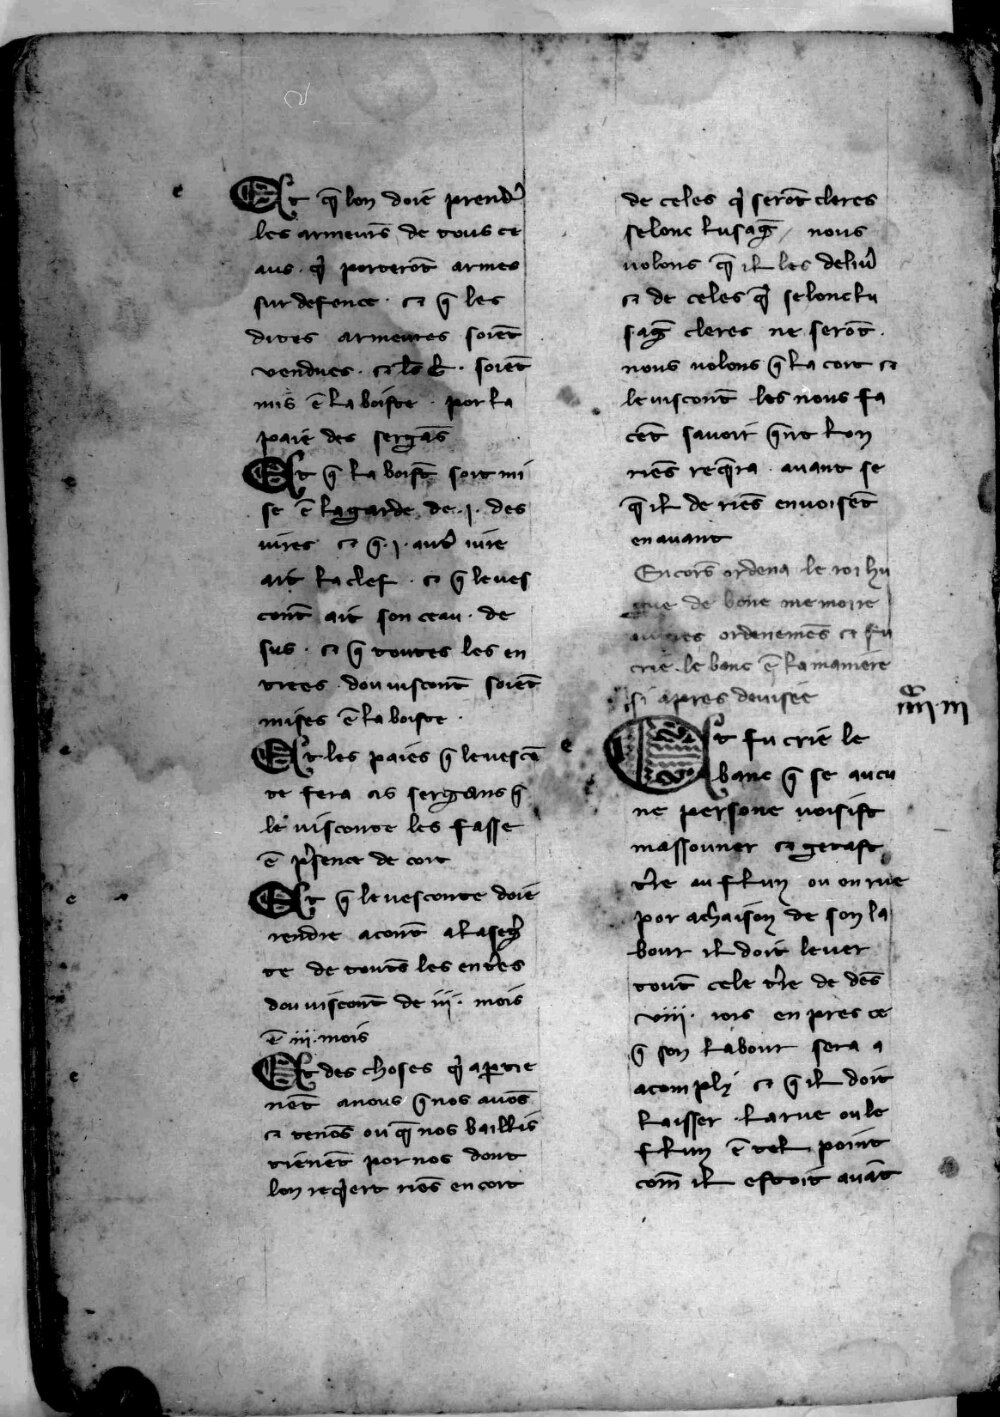 Et q̄ lon doie prendr̉
les armeurs de tous ce
aus · q̉ porterōt armes
sur defence · et q̄ les
dites armeures soiēt
vendues · et · soiēt
mis ē la boiste · por la
paie des sergās
Et q̄ la boist̄ soit mi
se ē la garde de · j · des
iures et q̄ · j · autr̉ iure
ait la clef · et q̄ le ves
cont̄ ait son ceau · de
sus · et q̄ toutes les en
trees dou viscont̄ soiēt
mises ē la boiste ·
Et les paies q̄ le vescō
te fera as sergans q̄
le visconte les fasse
ē p̉sence de cort
Et q̄ le vesconte doie
rendre acont̄ a la seg̉
te de touts les entr̉es
dou viscont̄ de iii · mois
ē iii · mois
Et des choses q̉ apartie
nēt a nous q̄ nos avōs
et tenōs ou q̄ nos baillis
tienēt por nos dont
lon req̉ert riēs en cort
de celes q̉ serōt cleres
selonc lusaḡ / nous
volons q̄ il les deliur̉
et de celes q̉ selonc lu
saḡ cleres ne serōt ·
nous volons q̄ la cort et
le viscont̄ les nous fa
cēt savoir q̄nt lon
riēs req̄ra · avant se
q̄ il de riēs en voisēt
en avant
Encors ordena le roi hu
gue de bone memoire
autres ordenemēs et fu
crie le banc ē la maniere
si apres devisee
Et fu crie le
banc q̄ se aucu
ne persone voisist
massonner et getast
tr̉re au flun ou en rue
por achaison de son la
bour il doit lever
tout cele tr̉re de dēs
viii · iors en pres ce
q̄ son labour sera a
acomply et q̄ il doit
laisser la rue ou le
flun ē tel point
com̄ il estoit avāt